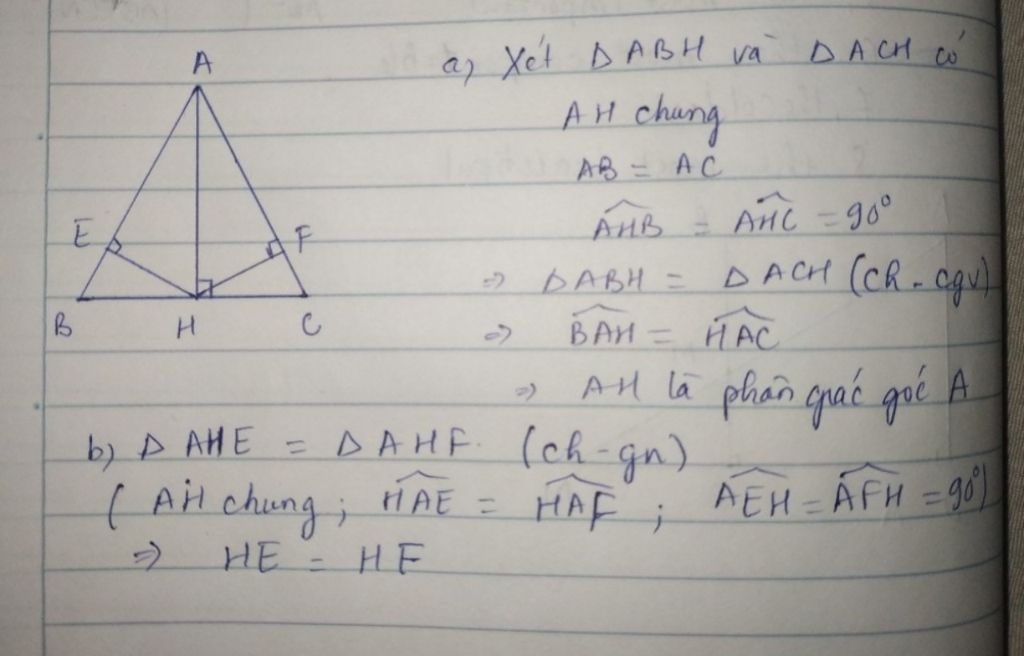 A
E
F
B
H
C
a) Xét ΔABH và ΔACH có
AH chung
AB = AC
\widehat{AHB} = \widehat{AHC} = 90°
⇒ ΔABH = ΔACH (ch - cgv)
⇒ \widehat{BAH} = \widehat{HAC}
⇒ AH là phân giác góc A
b) ΔAHE = ΔAHF. (ch - gn)
( AH chung ; \widehat{HAE} = \widehat{HAF} ; \widehat{AEH} = \widehat{AFH} = 90°)
⇒ HE = HF